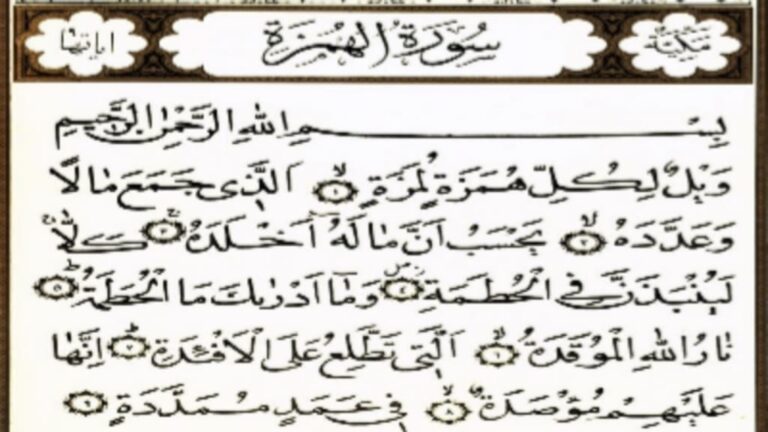 مكية سورة الهمزة اياتها
بِسْمِ اللهِ الرَّحْمٰنِ الرَّحِيمِ
وَيْلٌ لِكُلِّ هُمَزَةٍ لُمَزَةٍ ١ اَلَّذِى جَمَعَ مَالًا
وَعَدَّدَهُ ٢ يَحْسَبُ اَنَّ مَالَهُ اَخْلَدَهُ ٣ كَلَّا
لَيُنْبَذَنَّ فِى الْحُطَمَةِ ٤ وَمَا اَدْرٰيكَ مَا الْحُطَمَةُ ٥
نَارُ اللهِ الْمُوقَدَةُ ٦ اَلَّتِى تَطَّلِعُ عَلَى الْاَفْئِدَةِ ٧ اِنَّهَا
عَلَيْهِمْ مُؤْصَدَةٌ ٨ فِى عَمَدٍ مُمَدَّدَةٍ ٩